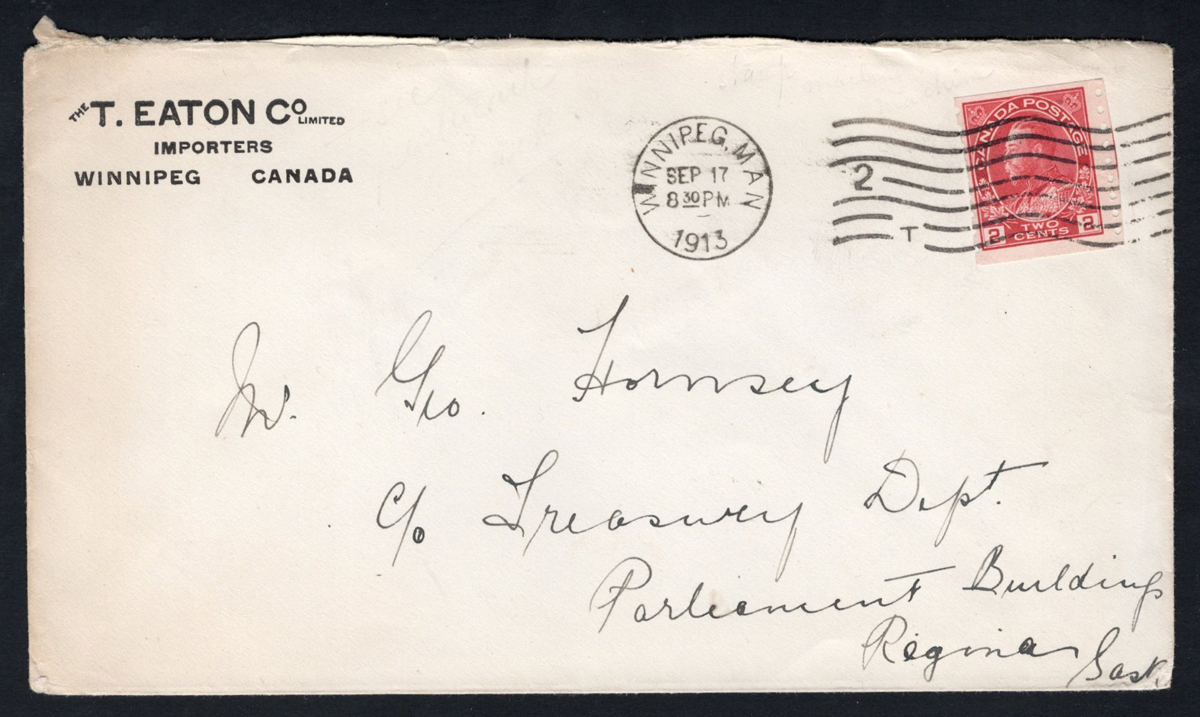 THE T. EATON CO LIMITED
IMPORTERS
WINNIPEG CANADA
WINNIPEG, MAN
SEP 17
8 30 PM
1913
2
T
CANADA POSTAGE
2 TWO CENTS 2
Mr. Geo. Hornsey
c/o Treasury Dept.
Parliament Buildings
Regina Sask.